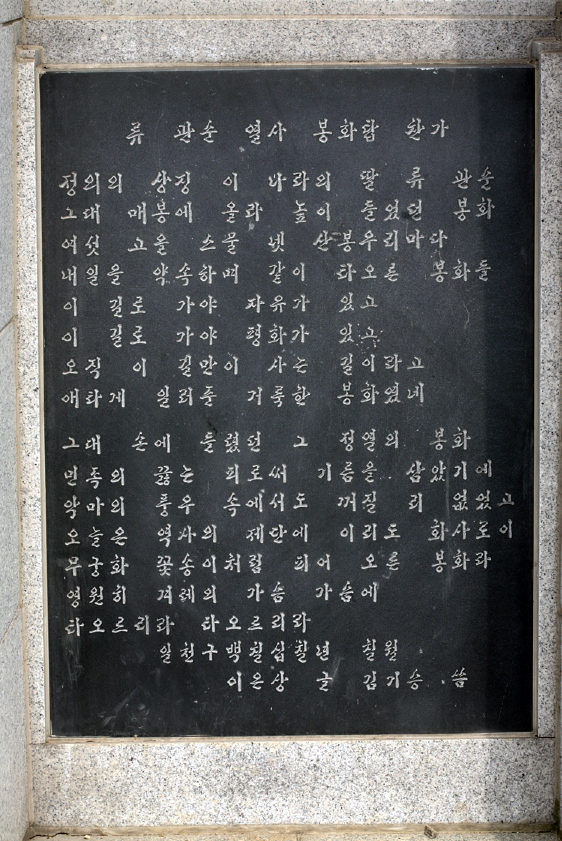 류 관순 열사 봉화탑 찬가
정의의 상징 이 나라의 딸 류 관순
그대 매봉에 올라 높이 들었던 봉화
여섯 고을 스물 넷 산봉우리마다
내일을 약속하며 같이 타오른 봉화들
이 길로 가야 자유가 있고
이 길로 가야 평화가 있고
오직 이 길만이 사는 길이라고
애타게 일러줄 거룩한 봉화였네
그대 손에 들렸던 그 정열의 봉화
민족의 끓는 피로써 기름을 삼았기에
악마의 풍우 속에서도 꺼질 리 없었고
오늘은 역사의 제단에 이리도 화사로이
무궁화 꽃송이처럼 피어 오른 봉화라
영원히 겨레의 가슴 가슴에
타오르리라 타오르리라
일천구백칠십칠년 칠월
이은상 글 김기승 씀